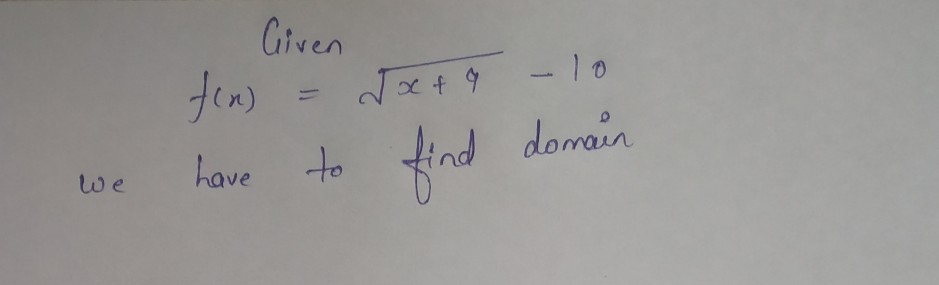 Given
f(x) = √x+9 - 10
we have to find domain